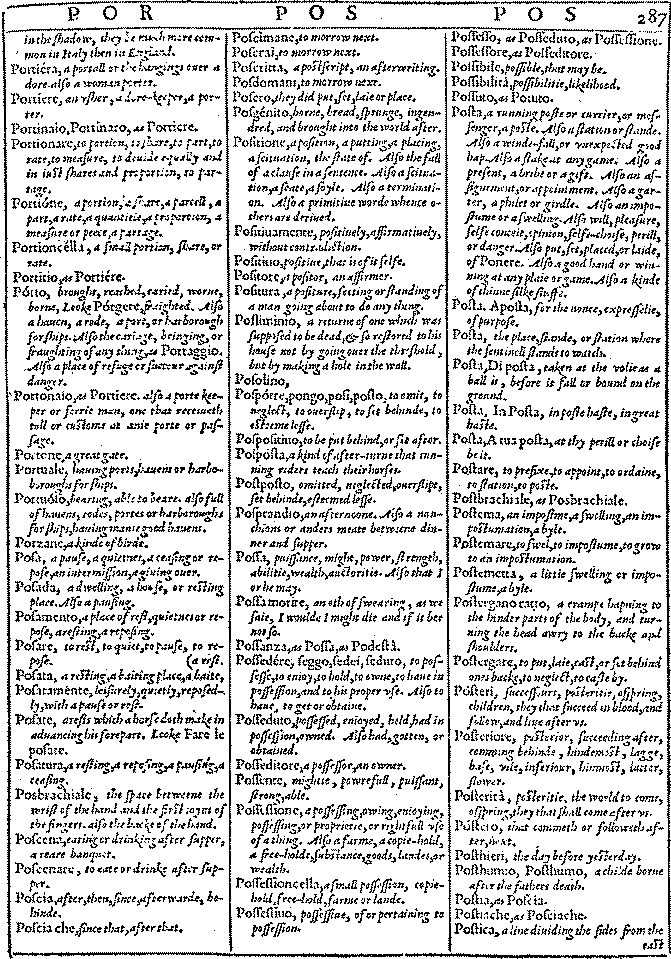 P O R
P O S
P O S
287
in the shadow, they be much more com-
mon in Italy then in England.
Portiéra, a portall or the hangings over a
dore. also a woman porter.
Portiere, an usher, a dore-keeper, a por-
ter.
Portinaio, Portinaro, as Portiere.
Portionare, to portion, to share, to part, to
rate, to measure, to devide equally and
in iust shares and proportion, to par-
tage.
Portióne, a portion, a share, a parcell, a
part, a rate, a quantitie, a proportion, a
measure or peece, a partage.
Portioncélla, a small portion, share, or
rate.
Portitio, as Portiére.
Pórto, brought, reached, caried, worne,
borne, Looke Pórgere, fraighted. Also
a hauen, a rode, a port, or harborough
for ships. Also the cariage, bringing, or
fraughting of any thing, as Portaggio.
Also a place of refuge or succour against
danger.
Portonaio, as Portiere. also a porte kee-
per or ferrie man, one that receiueth
toll or customs at anie porte or pas-
sage.
Portone, a great gate.
Portuale, hauing ports, hauens or harbo-
boroughs for ships.
Portuóso, bearing, able to beare. also full
of hauens, rodes, portes or harboroughs
for ships, hauing manie good hauens.
Porzane, a kinde of birde.
Posa, a pause, a quietnes, a ceasing or re-
pose, an intermission, a giuing ouer.
Posada, a dwelling, a house, or resting
place. Also a pausing.
Posamento, a place of rest, quietnes or re-
pose, a resting, a reposing.
Posare, to rest, to quiet, to pause, to re-
pose. (a rest.
Posata, a resting, a baiting place, a baite,
Positamente, leisurely, quietly, reposed-
ly, with a pause or rest.
Posate, arests which a horse doth make in
aduancing his forepart. Looke Fare le
posate.
Positura, a resting, a reposing, a pausing, a
ceasing.
Posbrachiale, the space betweene the
wrist of the hand and the first ioynt of
the fingers. also the backe of the hand.
Poscena, eating or drinking after supper,
a reare banquet.
Poscenare, to eate or drinke after sup-
per.
Poscia, after, then, since, afterwarde, be-
hinde.
Poscia che, since that, after that.
Poscimane, to morrow next.
Poscrai, to morrow next.
Poscritta, a postscript, an afterwriting.
Posdomani, to morrow next.
Posero, they did put, set, laie or place.
Posgénito, borne, bread, sprunge, ingen-
dred, and brought into the world after.
Positione, a position, a putting, a placing,
a scituation, the state of. Also the fall
of a clause in a sentence. Also a scitua-
tion, a seate, a soyle. Also a terminati-
on. Also a primitiue worde whence o-
thers are deriued.
Positiuamente, positiuely, affirmatiuely,
without contradiction.
Positiuo, positiue, that is of it selfe.
Positore, a positor, an affirmer.
Positura, a positure, setting or standing of
a man going about to do any thing.
Posliminio, a returne of one which was
supposed to be dead, & so restored to his
house not by going ouer the threshold,
but by making a hole in the wall.
Posolino,
Pospórre, pongo, posi, posto, to omit, to
neglect, to ouerslip, to set behinde, to
esteeme lesse.
Pospositiuo, to be put behind, or set after.
Posposta, a kind of after-turne that run-
ning riders teach their horses.
Posposto, omitted, neglected, ouerslipt,
set behinde, esteemed lesse.
Posprandio, an afternoone. Also a nun-
chions or anders meate betweene din-
ner and supper.
Possa, puissance, might, power, strength,
abilitie, wealth, auctoritie. Also that I
or he may.
Possa morire, an oth of swearing, as we
saie, I woulde I might die and if it be
not so.
Possanza, as Possa, as Podestà.
Possedére, seggo, sedei, seduto, to pos-
sesse, to enioy, to hold, to owne, to haue in
possession, and to his proper vse. Also to
haue, to get or obtaine.
Posseduto, possessed, enioyed, held, had in
possession, owned. Also had, gotten, or
obtained.
Posseditore, a possessor, an owner.
Possente, mightie, powrefull, puissant,
strong, able.
Possessione, a possessing, owing, enioying,
possessing or proprietie, or right full vse
of a thing. Also a farme, a copie-hold,
a free-holde, substance, goods, landes, or
wealth.
Possessioncella, a small possession, copie-
hold, free-hold, farme or lande.
Possessiuo, possessiue, of or pertaining to
possession.
Possesso, as Posseduto, as Possessione.
Possessore, as Posseditore.
Possibile, possible, that may be.
Possibilità, possibilitie, likelihood.
Possuto, as Potuto.
Posta, a running poste or currier, or mes-
senger, a poste. Also a station or stande.
Also a winde-fall, or vnexpected good
hap. Also a stake at any game. Also a
present, a bribe or a gift. Also an as-
signement, or appointment. Also a gar-
ter, a philet or girdle. Also an impo-
stume or a swelling. Also will, pleasure,
selfe conceit, opinion, selfe-choise, perill,
or danger. Also put, set, placed, or laide,
of Ponere. Also a good hand or win-
ning at any plaie or game. Also a kinde
of thinne silke stuffe.
Posta. Aposta, for the nonce, expresselie,
of purpose.
Posta, the place, stande, or station where
the sentinell stands to watch.
Posta, Di posta, taken at the volie as a
ball is, before it fall or bound on the
ground.
Posta, In Posta, in poste haste, in great
haste.
Posta, A tua posta, at thy perill or choise
be it.
Postare, to prefixe, to appoint, to ordaine,
to station, to poste.
Postbrachiale, as Posbrachiale.
Postema, an impostume, a swelling, an im-
postumation, a byle.
Postemare, to swel, to impostume, to grow
to an impostumation.
Postemetta, a little swelling or impo-
stume, a byle.
Postergano ratto, a crampe hapning to
the hinder parts of the body, and tur-
ning the head awry to the backe and
shoulders.
Postergare, to put, laie, cast, or set behind
ones backe, to neglect, to caste by.
Pósteri, successours, posteritie, ofspring,
children, they that succeed in blood, and
follow, and liue after vs.
Posteriore, posterior, succeeding after,
comming behinde, hindmost, lagge,
base, vile, inferiour, hinmost, latter,
slower.
Posterità, posteritie, the world to come,
ofspring, they that shall come after vs.
Póstero, that commeth or followeth af-
ter, next.
Posthieri, the day before yesterday.
Posthumio, Posthumo, a childe borne
after the fathers death.
Postia, as Poscia.
Postiache, as Posciache.
Postica, a line dividing the sides from the
east